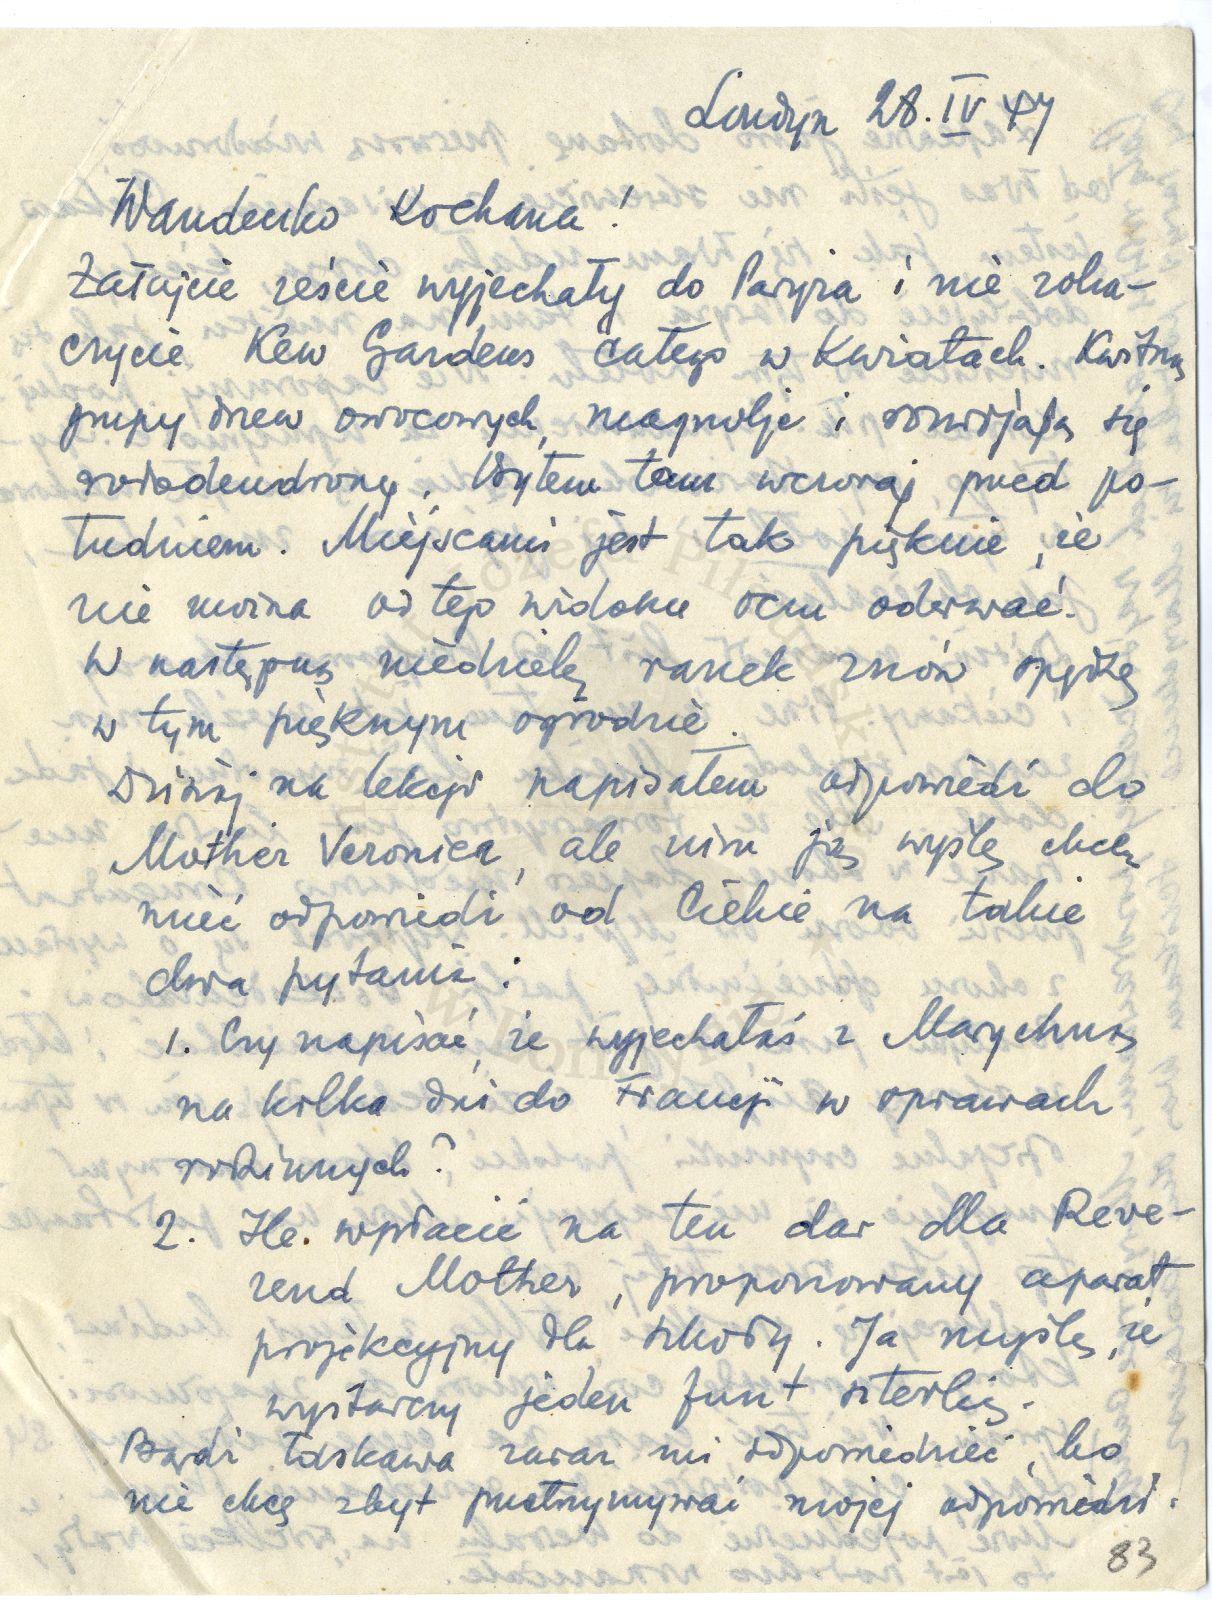 Londyn 28.IV 47
Wandeczko Kochana!
Żałujcie żeście wyjechały do Paryża i nie zoba-
czycie Kew Gardens całego w kwiatach. Kwitną
grupy drzew owocowych, magnolje i rozwijają się
rododendrony. Byłem tam wczoraj przed po-
łudniem. Miejscami jest tak pięknie, że
nie można od tego widoku oczu oderwać.
W następną niedzielę ranek znów spędzę
w tym pięknym ogrodzie.
Dzisiaj na lekcji napisałem odpowiedź do
Mother Veronica, ale nim ją wyślę chcę
mieć odpowiedź od Ciebie na takie
dwa pytania:
1. Czy napisać, że wyjechałaś z Marychną
na kilka dni do Francji w sprawach
rodzinnych?
2. Ile wpłacić na ten dar dla Reve-
rend Mother, proponowany aparat
projekcyjny dla szkoły. Ja myślę, że
wystarczy jeden funt szterling.
Bądź łaskawa zaraz mi odpowiedzieć, bo
nie chcę zbyt przetrzymywać mojej odpowiedzi.
83